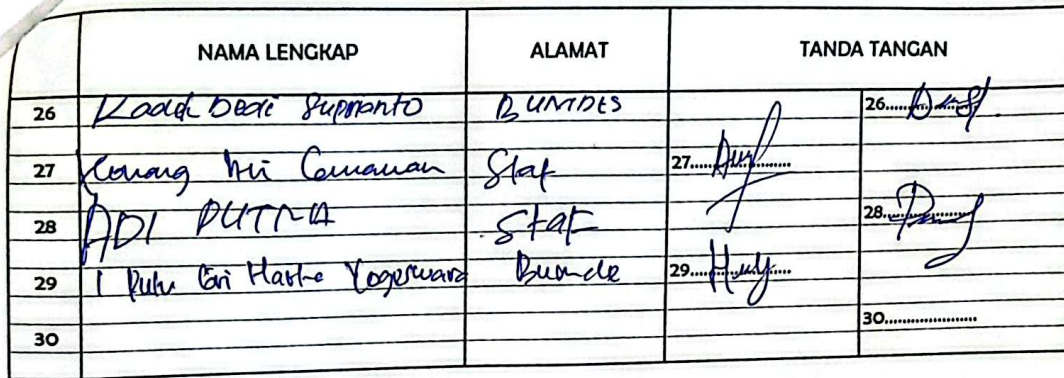 NAMA LENGKAP ALAMAT TANDA TANGAN
26 Kadek Dedi Suprianto BUMDES 26
27 Komang Tri Staf 27
28 ADI PUTRA Staf 28
29 I Putu Gri Yogeswara Bumde 29
30 30